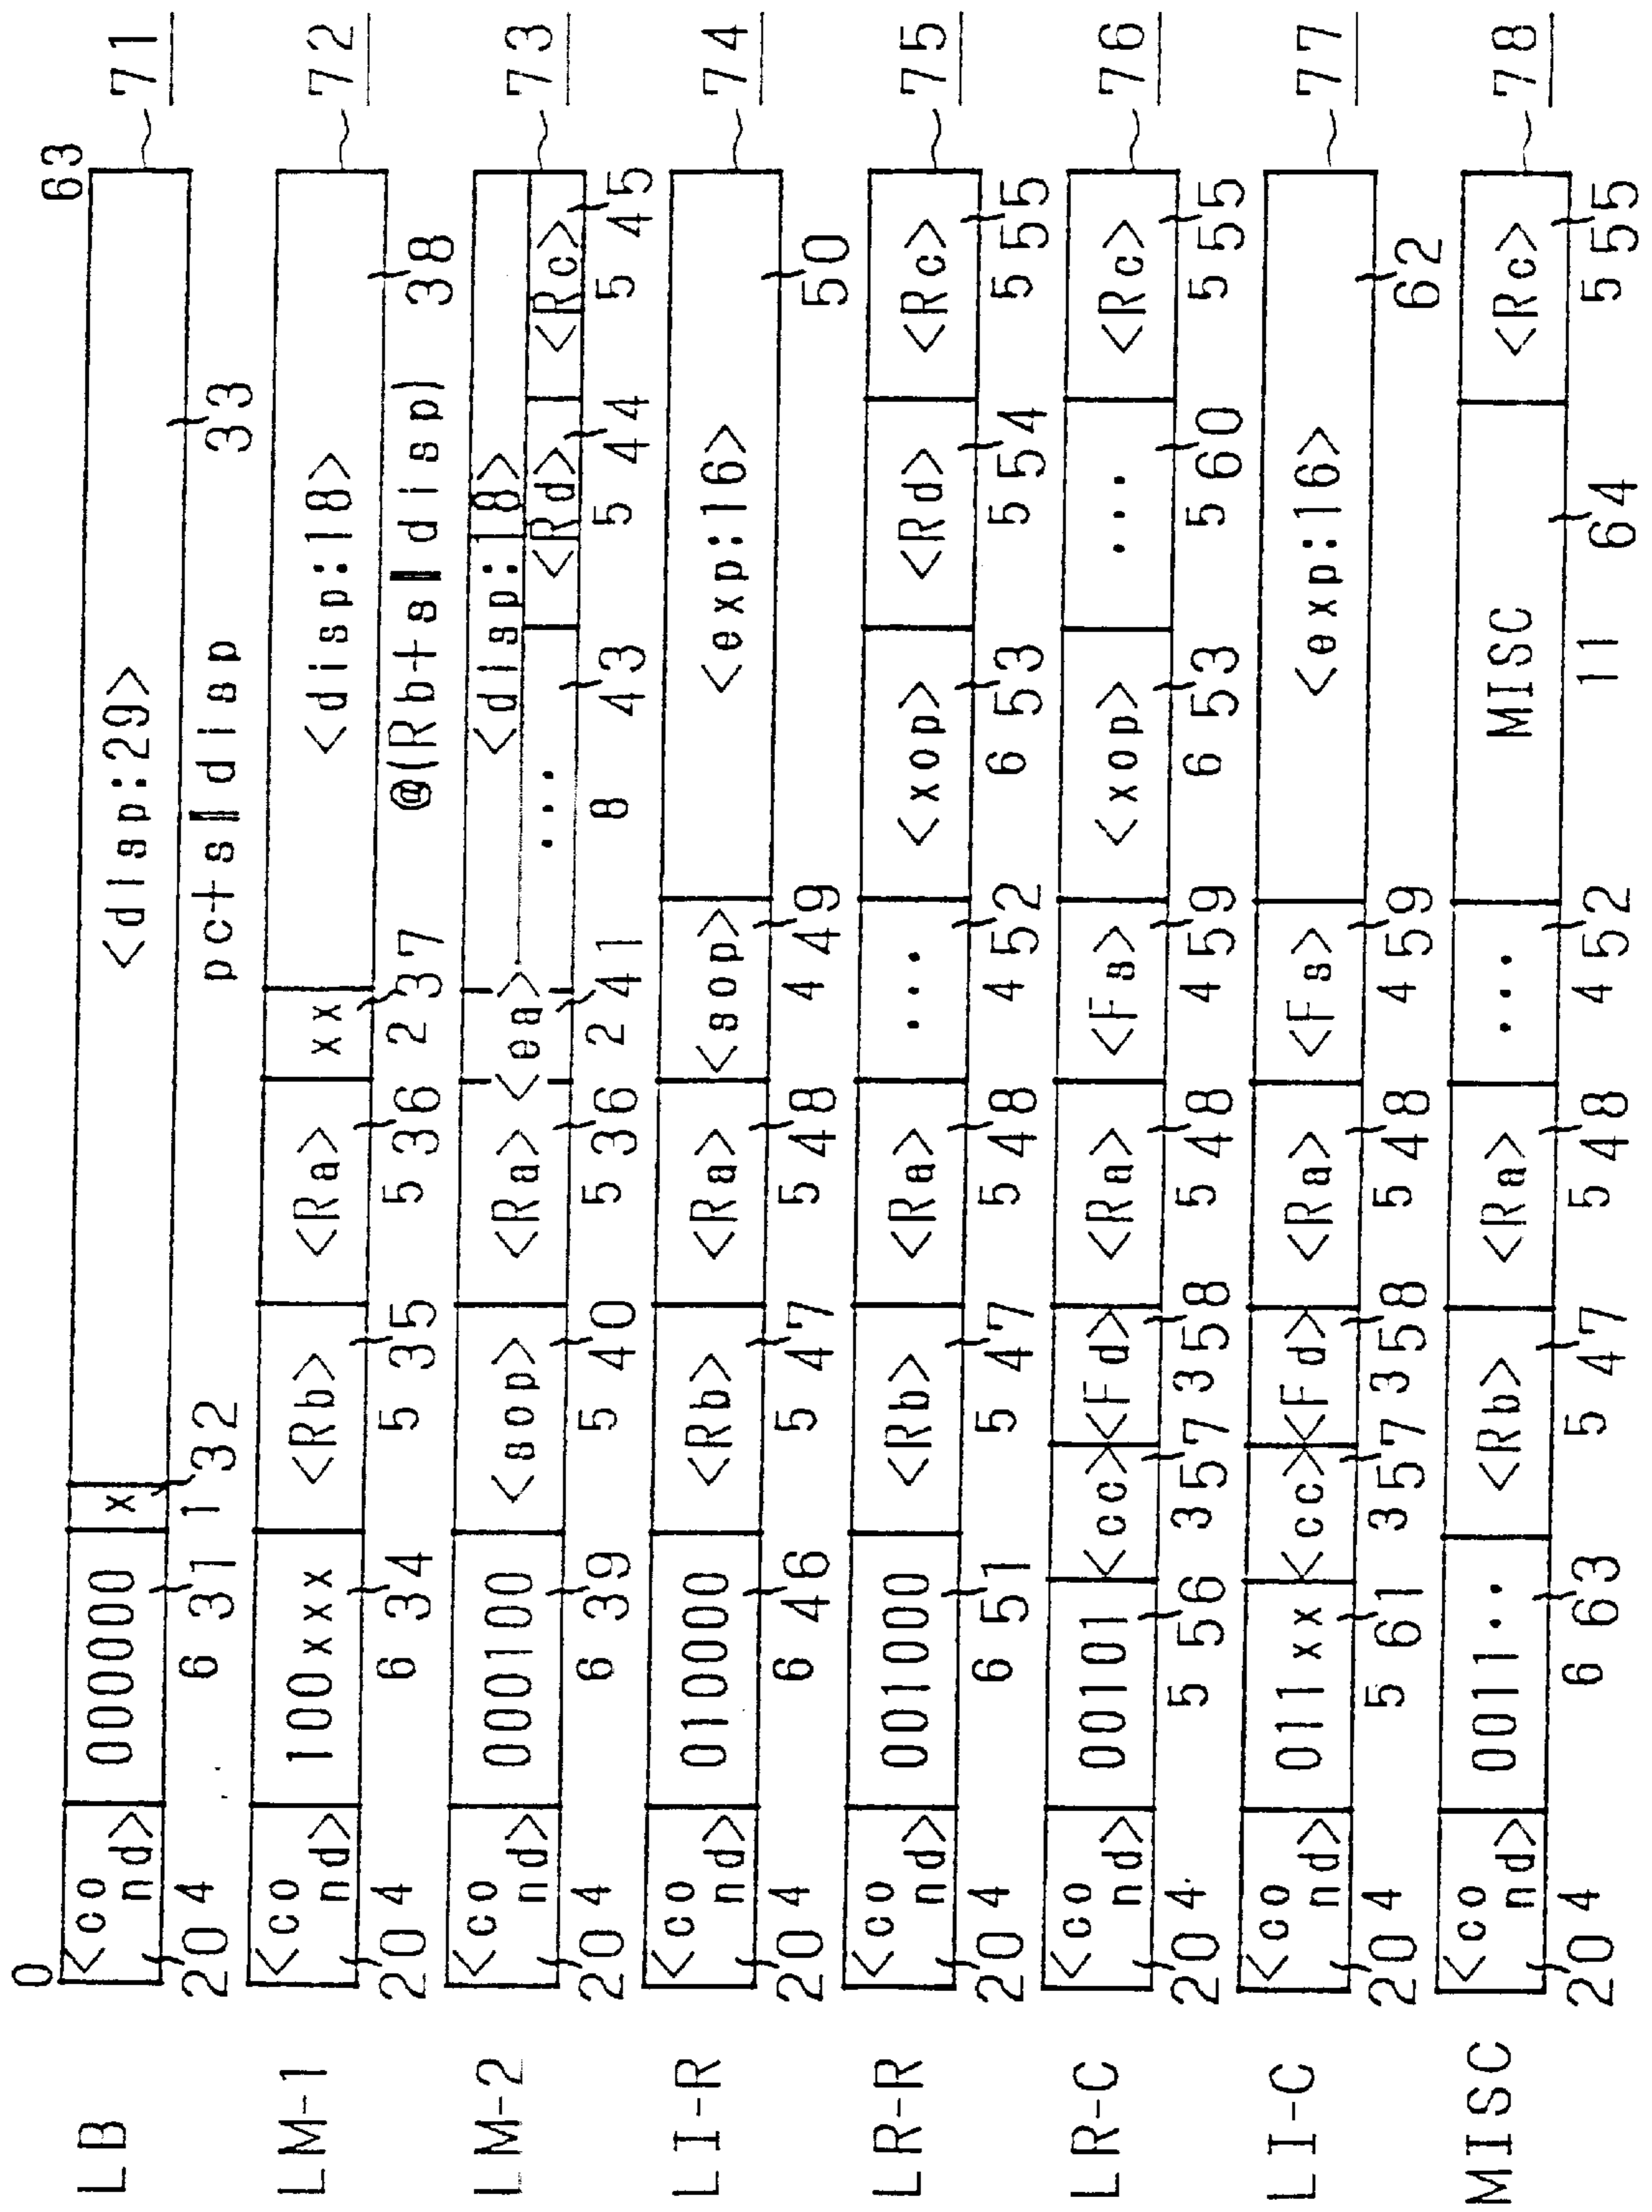 0 63
LB <co nd> 000000 x <disp:29> 71
20 4 6 31 1 32 33
pc+sll disp
LM-1 <co nd> 100xxx <Rb> <Ra> xx <disp:18> 72
20 4 6 34 5 35 5 36 2 37 @(Rb+sll disp) 38
LM-2 <co nd> 000100 <sop> <Ra> <ea> <disp:18> 73
... <Rd> <Rc>
20 4 6 39 5 40 5 36 2 41 8 43 5 44 5 45
LI-R <co nd> 010000 <Rb> <Ra> <sop> <exp:16> 74
20 4 6 46 5 47 5 48 4 49 50
LR-R <co nd> 001000 <Rb> <Ra> ... <xop> <Rd> <Rc> 75
20 4 6 51 5 47 5 48 4 52 6 53 5 54 5 55
LR-C <co nd> 00101 <cc> <Fd> <Ra> <Fs> <xop> ... <Rc> 76
20 4 5 56 3 57 3 58 5 48 4 59 6 53 5 60 5 55
LI-C <co nd> 011xx <cc> <Fd> <Ra> <Fs> <exp:16> 77
20 4 5 61 3 57 3 58 5 48 4 59 62
MISC <co nd> 0011.. <Rb> <Ra> ... MISC <Rc> 78
20 4 6 63 5 47 5 48 4 52 11 64 5 55